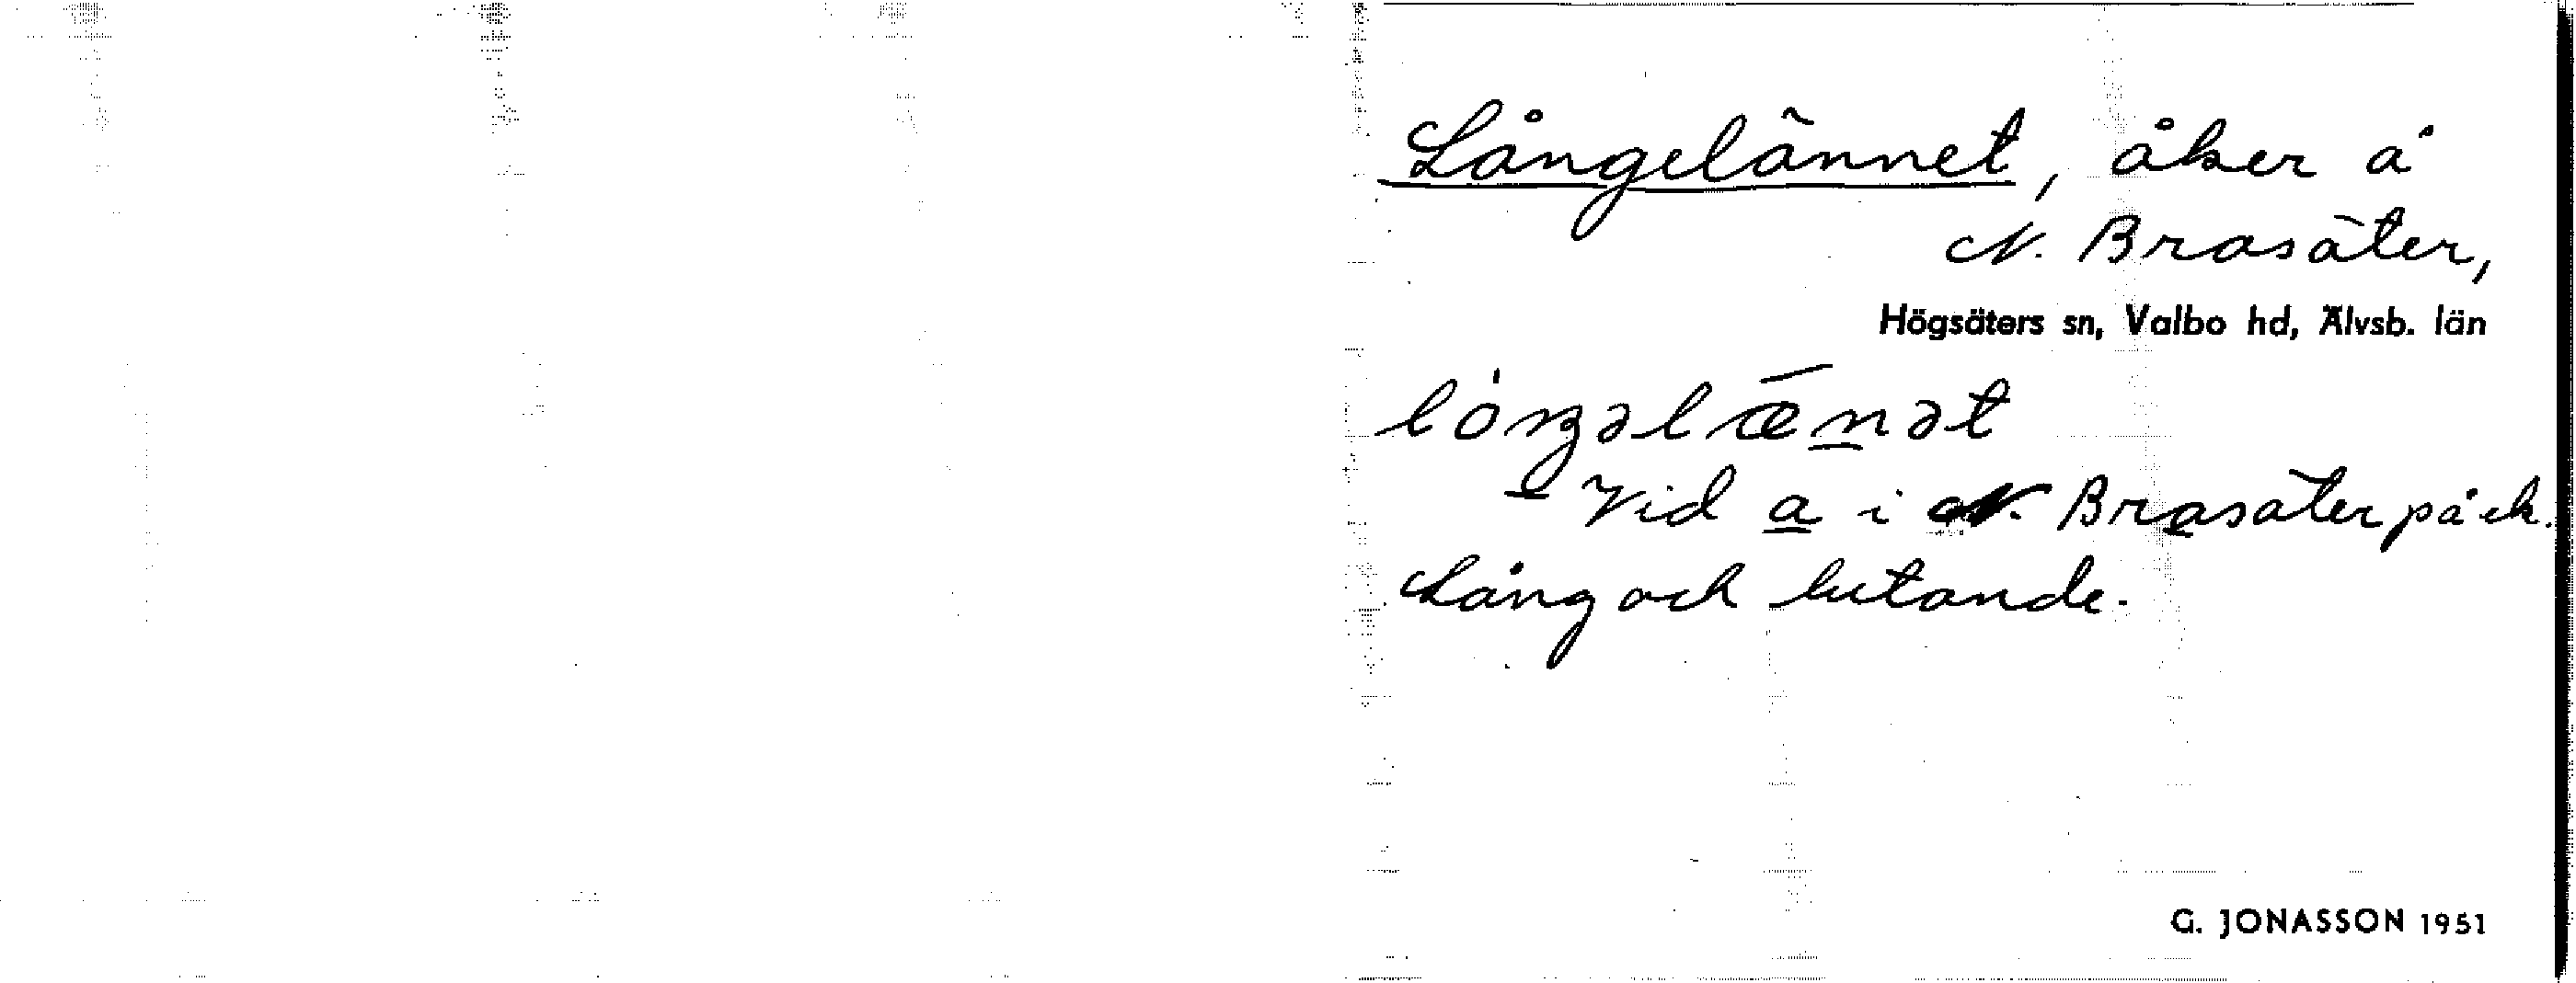 Långelännet, åker å
N. Brasäter,
Högsäters sn, Valbo hd, Älvsb. län
lóŋəlǣnət
- Vid a i N. Brasäter på ek.
Lång och lutande.
G. JONASSON 1951